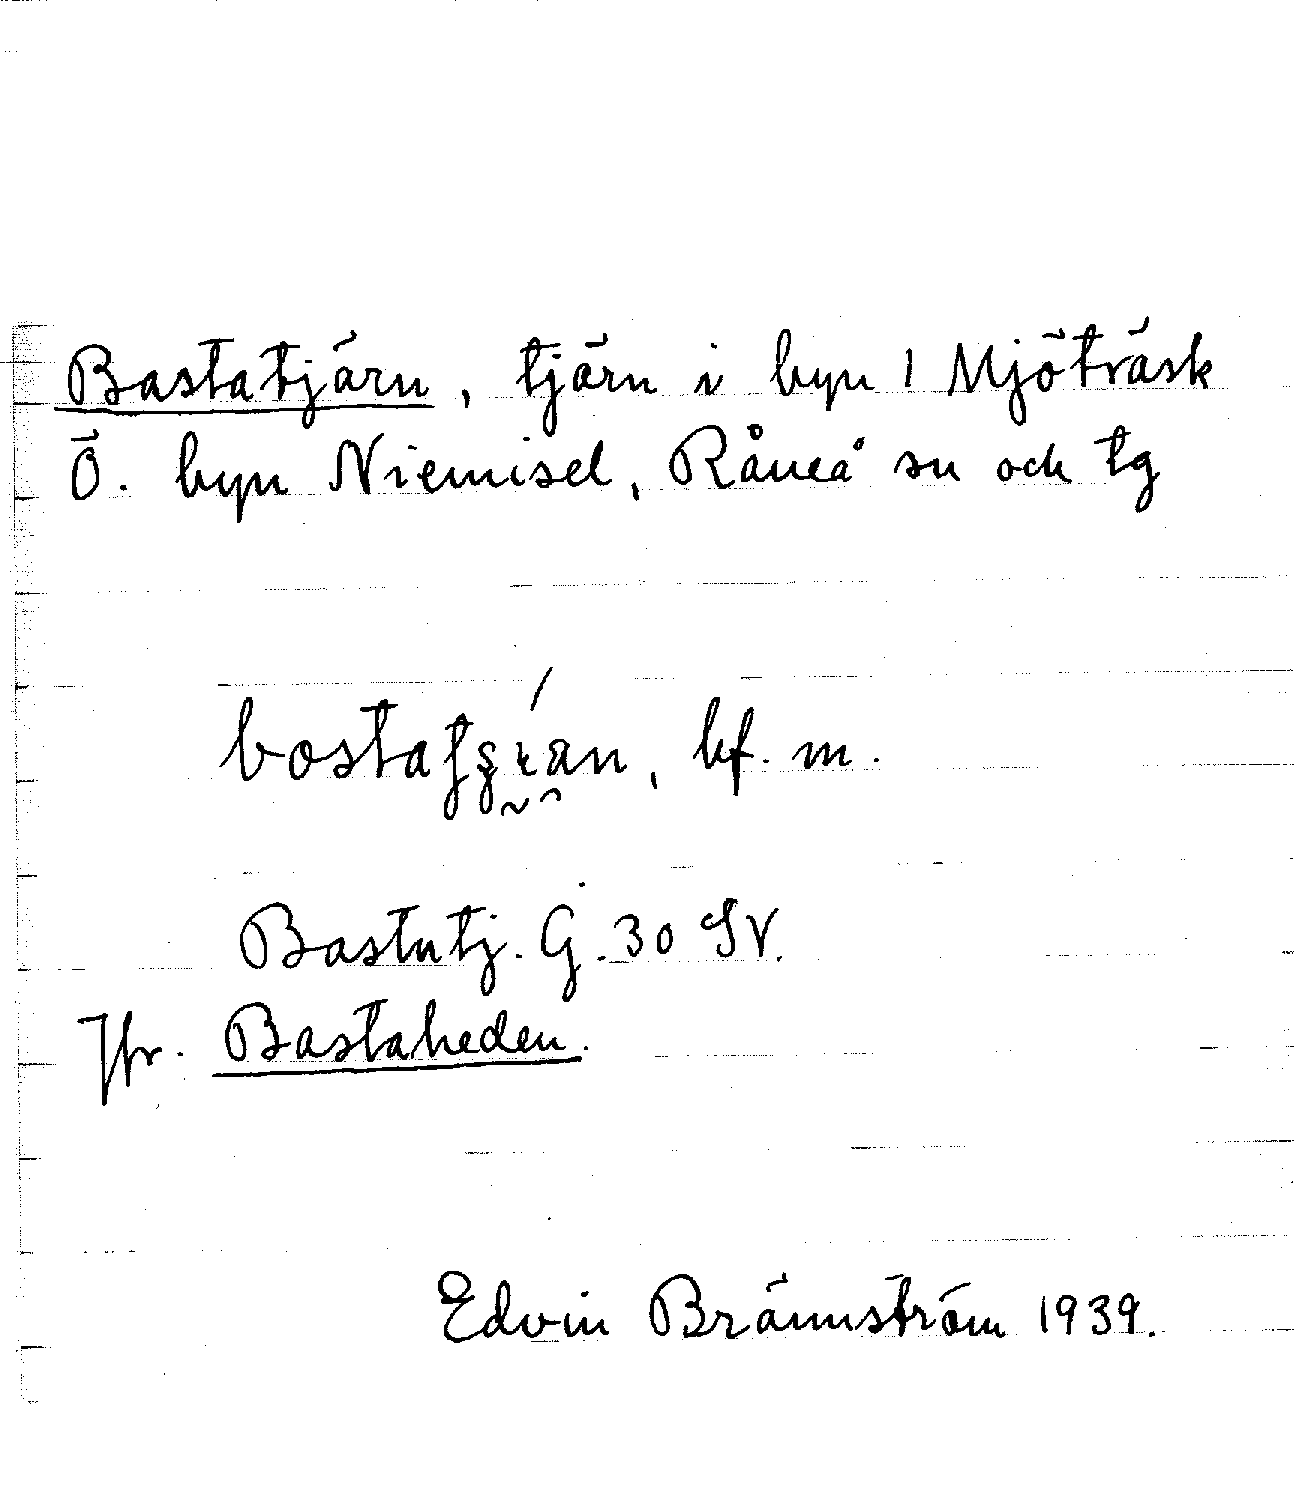 Bastatjärn, tjärn i byn 1 Mjöträsk
Ö. byn Niemisel, Råneå sn och tg
bf. m.
Bastutj. G. 30 SV.
Jfr. Bastaheden.
Edvin Brännström 1939.